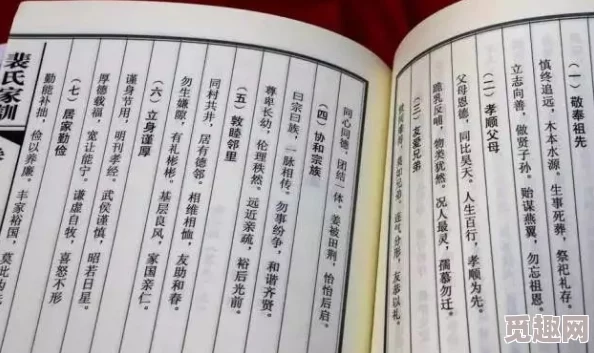 (一) 敬奉祖先
慎终追远，木本水源。生事死葬，祭祀礼存。
立志向善，做贤子孙。贻谋燕翼，勿忘祖恩。
(二) 孝顺父母
父母恩德，同比昊天。人生百行，孝顺为先。
跪乳反哺，物类犹然。况人最灵，孺慕勿迁。
(三) 友爱兄弟
难得，莫如兄弟。连气分形，友恭以礼。
同心同德，团结一体。姜被田荆，怡怡后启。
(四) 协和宗族
曰宗曰族，一脉相传。勿事纷争，和谐齐贤。
尊卑长幼，伦理秩然。远近亲疏，裕后光前。
(五) 敦睦邻里
同村共井，居有德邻。相维相恤，友助和春。
勿生嫌隙，有礼彬彬。基层良风，家国亲仁。
(六) 立身谨厚
谨身节用，明刊孝经。武侯谨慎，昭若日星。
厚德载福，宽让能宁。谦虚自牧，喜怒不形
(七) 居家勤俭
勤能补拙，俭以养廉。丰家裕国，莫此为
裴氏家训
觅趣网